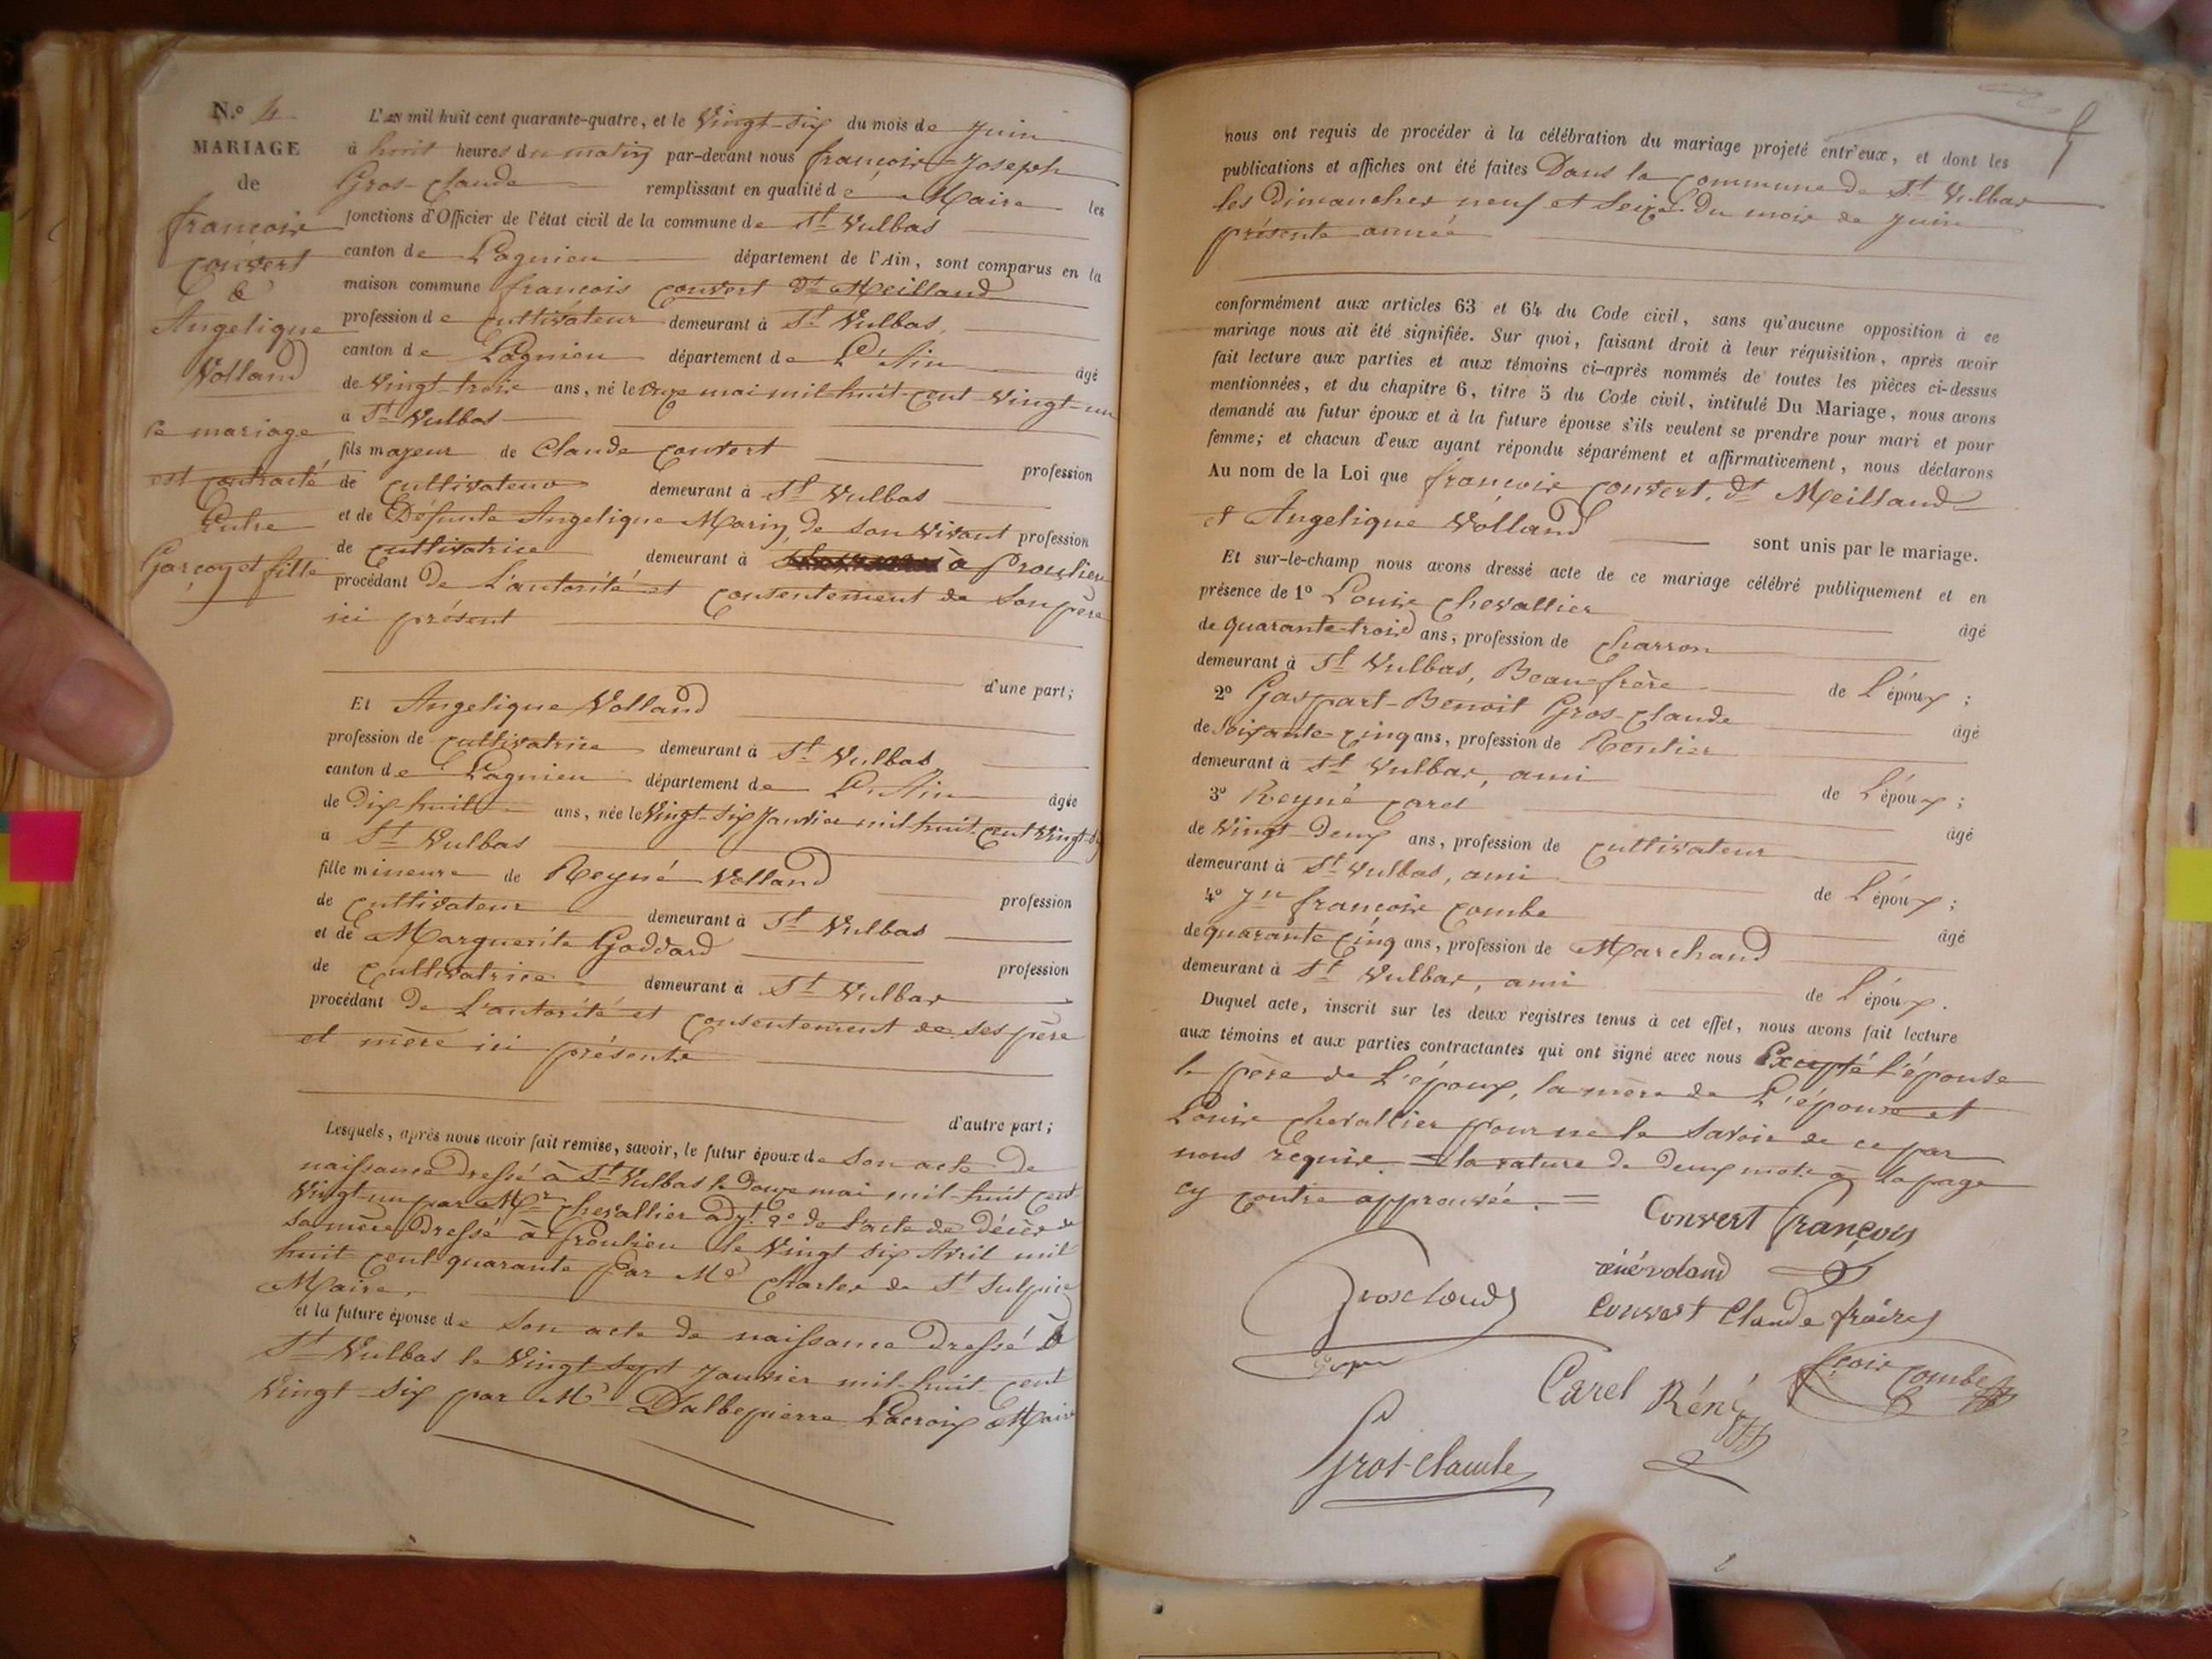 N.º 4
MARIAGE
de
françois
Convert
&
Angelique
Volland
ce mariage
est contracté
Entre
Garçon et fille
L'an mil huit cent quarante-quatre, et le Vingt-six du mois de Juin
à huit heures du matin par-devant nous françois-Joseph
Gros-Claude remplissant en qualité de Maire les
fonctions d'Officier de l'état civil de la commune de St Vulbas
canton de Lagnieu département de l'Ain, sont comparus en la
maison commune françois Convert dt Meilland
profession de Cultivateur demeurant à St Vulbas,
canton de Lagnieu département de L'Ain âgé
de Vingt-trois ans, né le onze mai mil-huit-cent-Vingt-un
a St Vulbas
fils majeur de Claude Convert profession
de Cultivateur demeurant à St Vulbas
et de Défunte Angelique Marin, de son vivant profession
de Cultivatrice demeurant à à Proulieu
procédant de L'autorité et Consentement de Son père
ici présent
d'une part;
Et Angelique Volland
profession de Cultivatrice demeurant à St Vulbas,
canton de Lagnieu département de L'Ain âgée
de Dix huit ans, née le Vingt-Six Janvier mil huit-Cent Vingt-Six
a St Vulbas
fille mineure de Reyné Volland profession
de Cultivateur demeurant à St Vulbas
et de Marguerite Goddard profession
de Cultivatrice demeurant à St Vulbas
procédant de L'autorité et Consentement de ses père
et mère ici présents
d'autre part;
Lesquels, après nous avoir fait remise, savoir, le futur époux de Son acte de
naissance Dressé à St Vulbas le Douze mai mil-huit Cent-
Vingt-un par Mr Chevallier adjt. 2º de l'acte de Décès de
sa mère Dressé à Proulieu le Vingt Six Avril mil
huit Cent quarante par Mr Charles de St Sulpice
Maire.
et la future épouse de Son acte de naissance Dressé à
St Vulbas le Vingt Sept Janvier mil-huit-Cent
Vingt-Six par Mr Dalbepierre Lacroix Maire
nous ont requis de procéder à la célébration du mariage projeté entr'eux, et dont les
publications et affiches ont été faites Dans la Commune de St Vulbas
les Dimanches neuf et Seize Du mois de Juin
présente année
conformément aux articles 63 et 64 du Code civil, sans qu'aucune opposition à ce
mariage nous ait été signifiée. Sur quoi, faisant droit à leur réquisition, après avoir
fait lecture aux parties et aux témoins ci-après nommés de toutes les pièces ci-dessus
mentionnées, et du chapitre 6, titre 5 du Code civil, intitulé Du Mariage, nous avons
demandé au futur époux et à la future épouse s'ils veulent se prendre pour mari et pour
femme; et chacun d'eux ayant répondu séparément et affirmativement, nous déclarons
Au nom de la Loi que françois Convert, dt Meilland
et Angelique Volland sont unis par le mariage.
Et sur-le-champ nous avons dressé acte de ce mariage célébré publiquement et en
présence de 1º Louis Chevallier âgé
de quarante-trois ans, profession de Charron
demeurant à St Vulbas, Beau-frère de L'époux ;
2º Gaspart-Benoit Gros-Claude âgé
de Soixante-Cinq ans, profession de Rentier
demeurant à St Vulbas, ami de L'époux ;
3º Reyné Carel âgé
de Vingt-Deux ans, profession de Cultivateur
demeurant à St Vulbas, ami de L'époux ;
4º Jn françois Combe âgé
de quarante Cinq ans, profession de Marchand
demeurant à St Vulbas, ami de L'époux.
Duquel acte, inscrit sur les deux registres tenus à cet effet, nous avons fait lecture
aux témoins et aux parties contractantes qui ont signé avec nous Excepté l'épouse
le père de L'époux, la mère de L'épouse et
Louis Chevallier pour ne le Savoir de ce par
nous requis. = la rature de deux mots a la page
cy contre approuvée. =
Convert françois
réné voland
Grosclaude
Convert Claude fraire
Carel Réné
fçois Combe
Gros-Claude